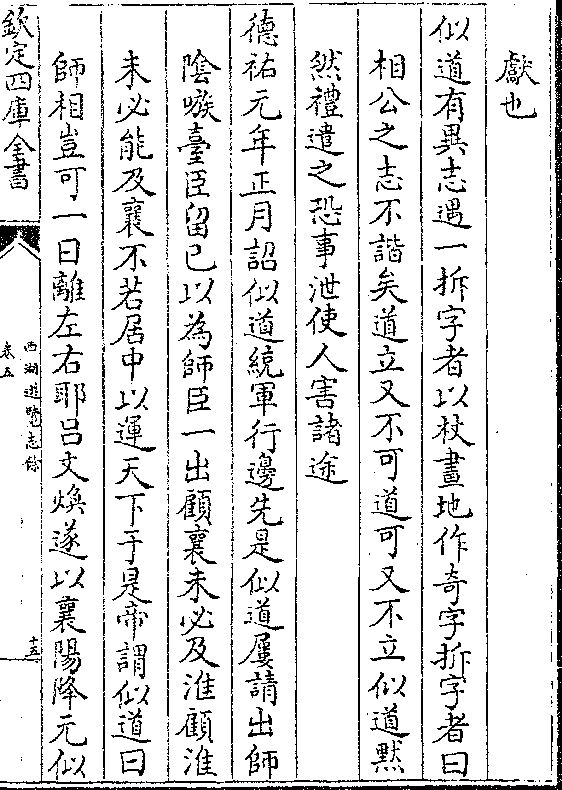 獻也
似道有異志遇一拆字者以杖畫地作奇字拆字者曰
相公之志不諧矣道立又不可道可又不立似道黙
然禮遣之恐事泄使人害諸途
德祐元年正月詔似道統軍行邊先是似道屢請出師
陰嗾臺臣留已以為師臣一出顧襄未必及淮顧淮
未必能及襄不若居中以運天下于是帝謂似道曰
師相豈可一日離左右耶吕文煥遂以襄陽降元似
欽定四庫全書
西湖遊覽志餘
卷五
十五